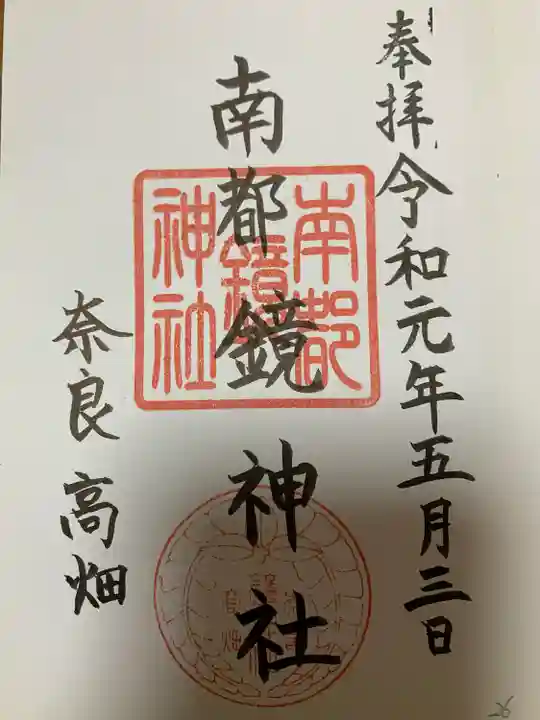 奉拝令和元年五月三日
南都鏡神社
南都
鏡
神社
奈良高畑